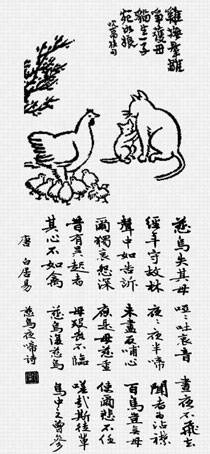 雞抱羣雛
争護母
貓生一子
宛如娘
慈烏失其母 啞々吐哀音 晝夜不飛去
經年守故林 夜々夜半啼 聞者為沾襟
聲中如告訴 未盡反哺心 百鳥豈無母
爾獨哀怨深 應是母慈重 使爾悲不任
昔有吳起者 母歿喪不臨 嗟哉斯徒輩
其心不如禽 慈烏復慈烏 鳥中之曾參
唐 白居易 慈烏夜啼詩